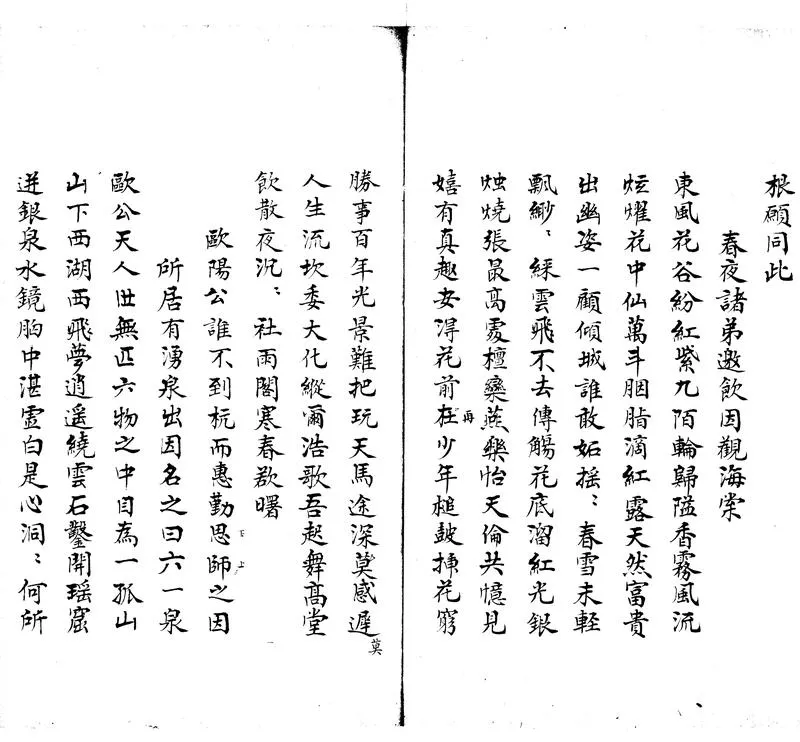 根願同此
春夜諸弟邀飲因觀海棠
東風花谷紛紅紫九陌輪歸隘香霧風流
炫燿花中仙萬斗胭脂滴紅露天然富貴
出幽姿一顧傾城誰敢妬搖〻春雪未輕
飄緲〻綵雲飛不去傳觴花底溜紅光銀
燭燒張最高處檀欒燕樂怡天倫共憶見
嬉有真趣安得花前在少年槌鼓揀花窮
再
勝事百年光景難把玩天馬途深莫感遲
莫
人生流坎委大化縱爾浩歌吾起舞高堂
飲散夜沉〻社雨閣寒春欲曙
歐陽公誰不到杭而惠勤思師之因
下上
所居有湧泉出因名之曰六一泉
歐公天人世無匹六物之中自為一孤山
山下西湖西飛夢逍遥繞雲石鑿開瑶窟
迸銀泉水鏡胸中湛虛白是心洞〻何所